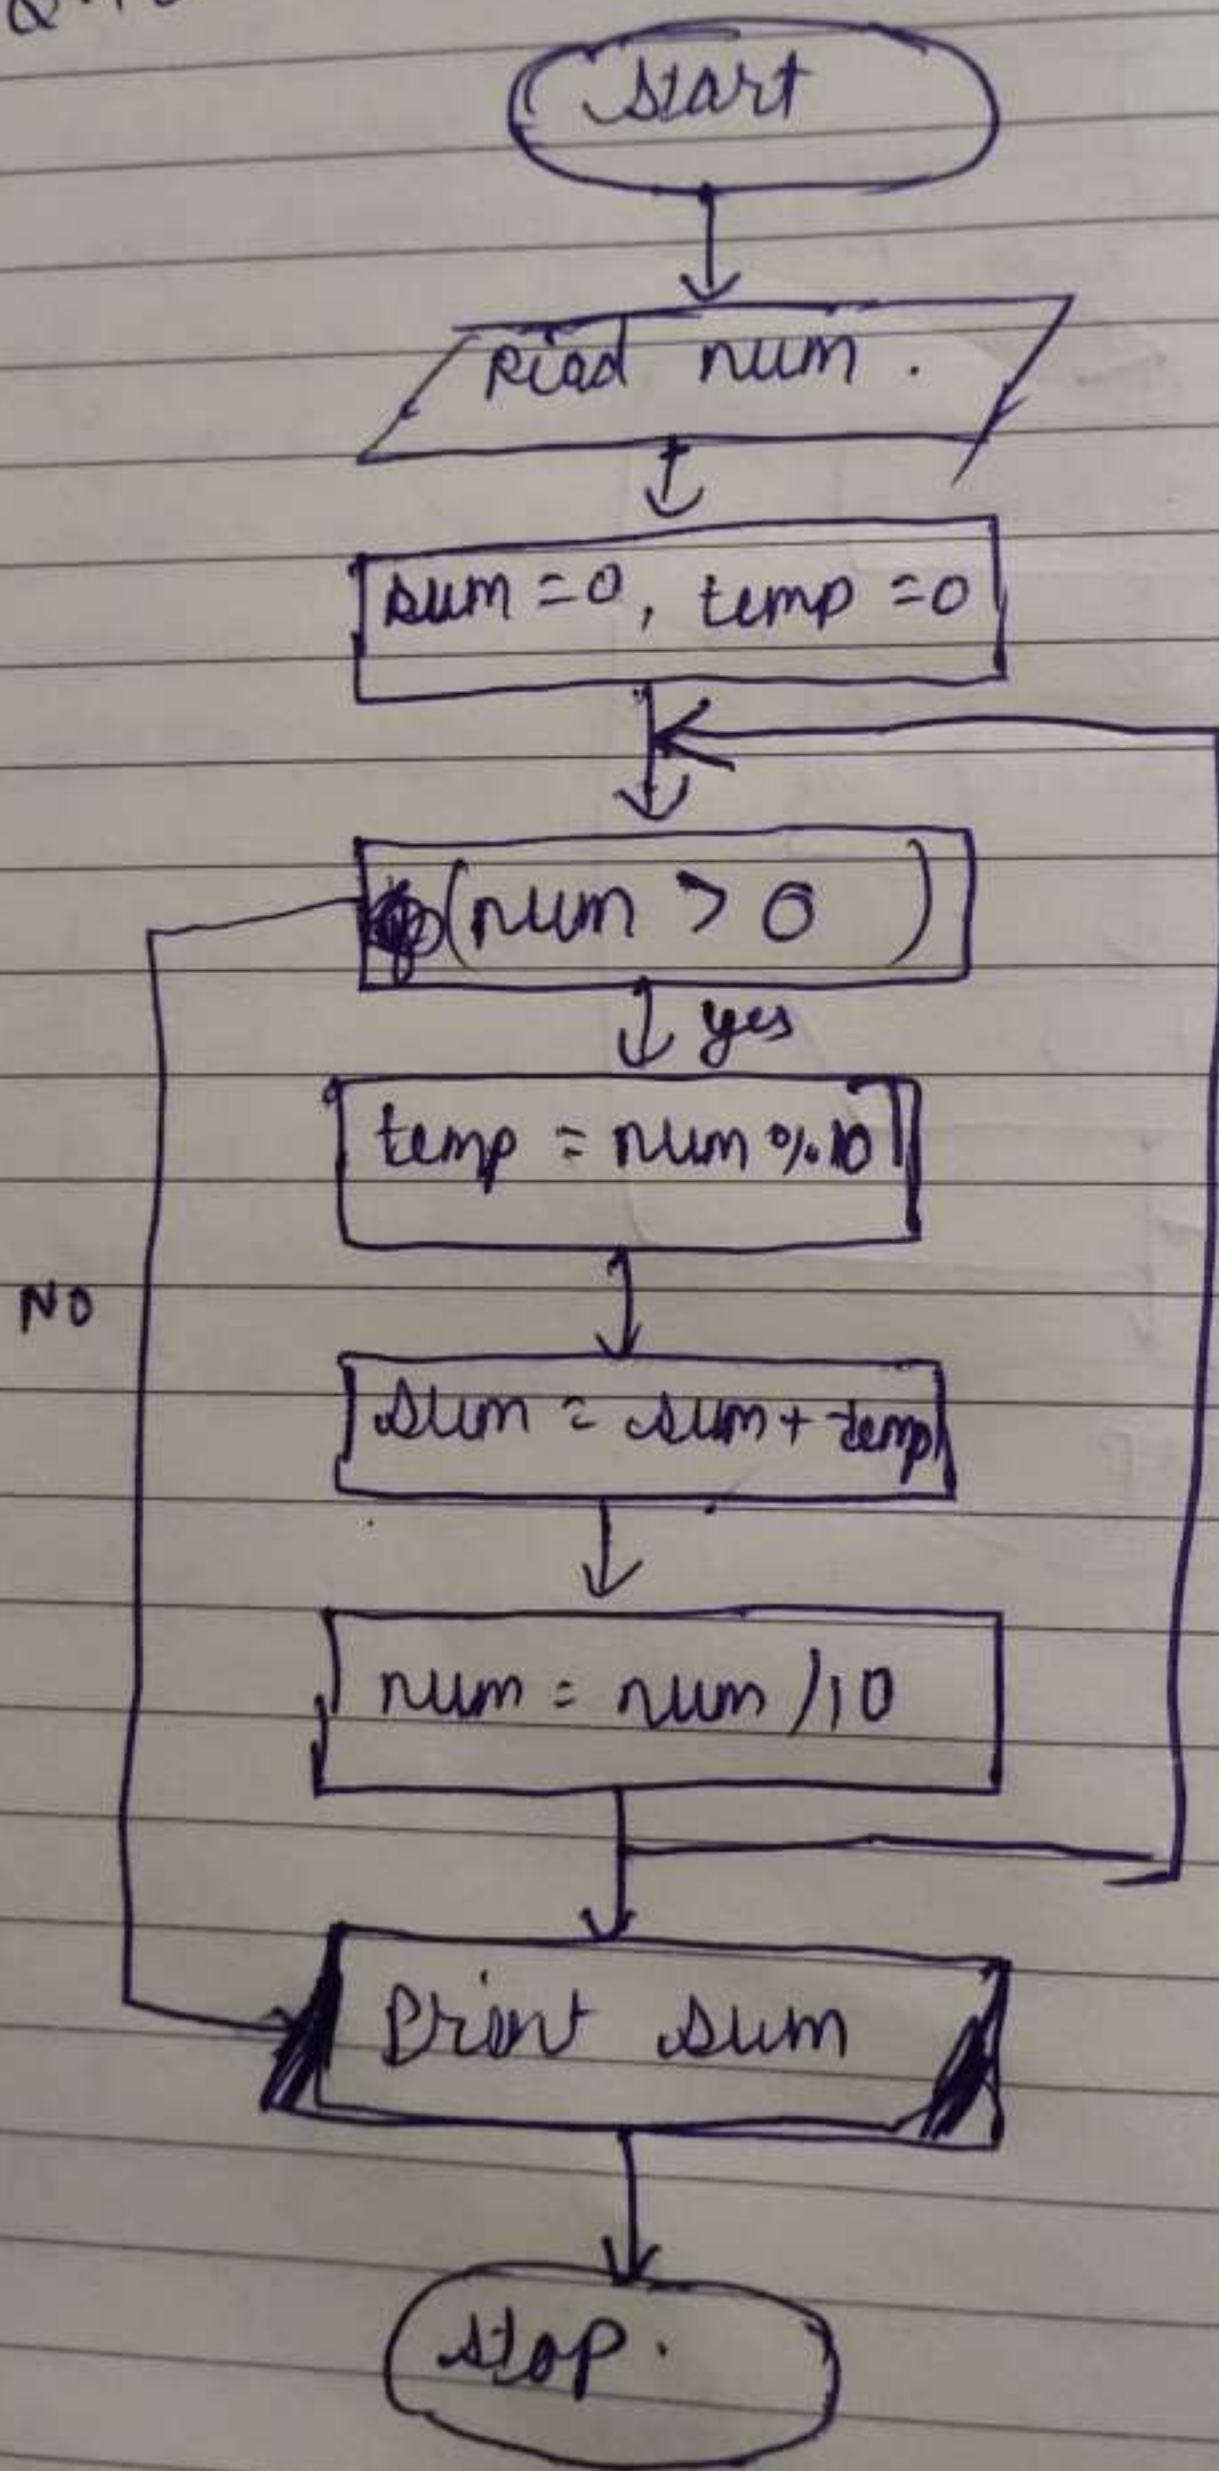 Start
Read num .
sum = 0, temp = 0
(num > 0 )
yes
temp = num % 10
NO
sum = sum + temp
num = num / 10
Print sum
stop .